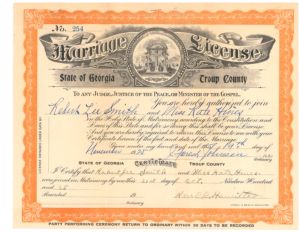 No. 254
Marriage License
State of Georgia Troup County
To any Judge, Justice of the Peace, or Minister of the Gospel.
You are hereby authorized to join
Robert Lee Smith and Miss Kate Hines
in the Holy State of Matrimony according to the Constitution and
Laws of this State and for so doing this shall be your License
And you are hereby required to return this License with your
Certificate hereon of the fact and date of the Marriage.
Given under my hand and seal this 19th day
November
STATE OF GEORGIA CERTIFICATE TROUP COUNTY
I Certify that Robert Lee Smith and Miss Kate Hines
were joined in Matrimony by me this day of Nineteen Hundred
and
Recorded
PARTY PERFORMING CEREMONY RETURN TO ORDINARY WITHIN 30 DAYS TO BE RECORDED